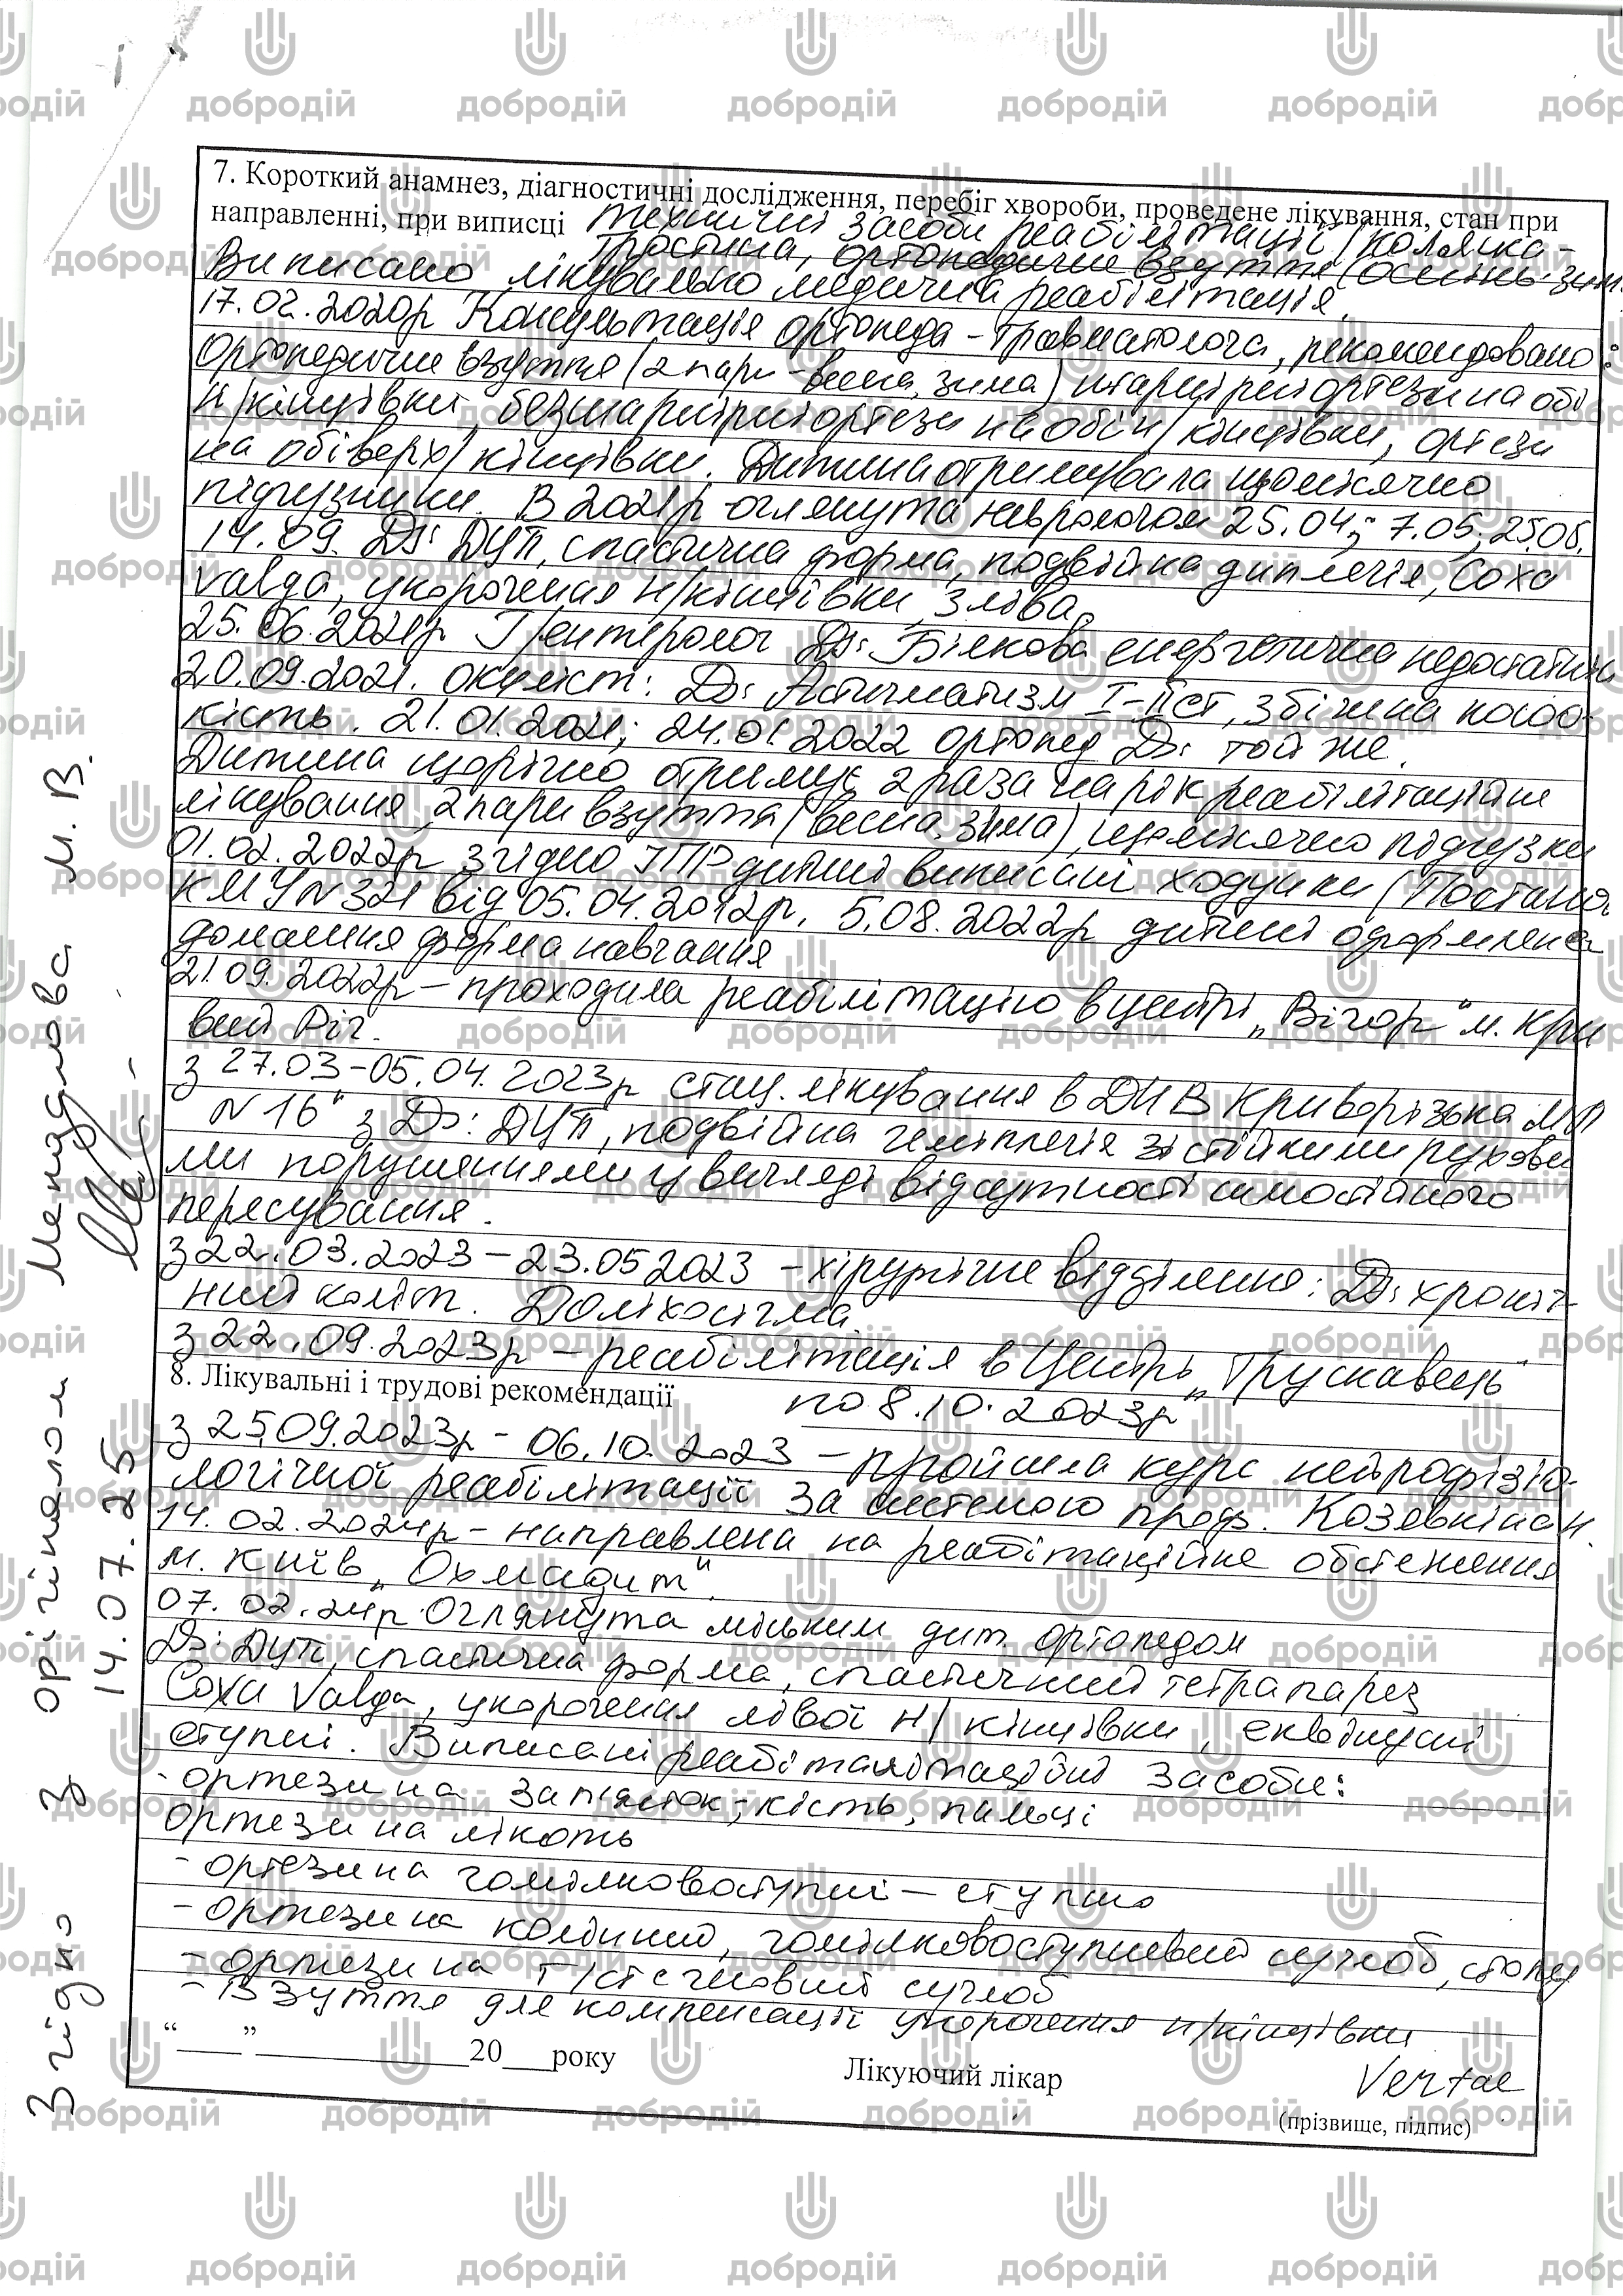 7. Короткий анамнез, діагностичні дослідження, перебіг хвороби, проведене лікування, стан при
направленні, при виписці технічні засоби реабілітації (коляска -
тростина, ортопедичне взуття (осінь-зим.
Виписано лікувально медична реабілітація.
17.02.2020р Консультація ортопеда-травматолога, рекомендовано:
Ортопедичне взуття (2 пари - весна, зима) шарнірні ортези на обі
н/кінцівки, безшарнірні ортези на обі н/кінцівки, ортези
на обі верх/кінцівки. Дитина отримувала щомісячно
підгузники. В 2021р оглянута неврологом 25.04; 7.05; 25.08.
14.09. Ds: ДЦП, спастична форма, подвійна диплегія, Coxa
valga, укорочення н/кінцівки, зліва.
25.06.2021р Гентеролог Ds: Білкова енергетична недостатн
20.09.2021. окуліст: Ds: Астигматизм I-IIст, збіжна косоо-
кість. 21.01.2021; 24.01.2022 ортопед Ds: той же.
Дитина щорічно отримує 2 раза на рік реабілітаційне
лікування, 2 пари взуття (весна, зима), щомісячно підгузки
01.02.2022р згідно ІПР дитині виписані ходунки (Постанов
КМУ N 321 від 05.04.2012р. 5.08.2022р дитині оформлена
домашня форма навчання
21.09.2022р - проходила реабілітацію в центрі „Вігор" м. Кри
вий Ріг.
з 27.03-05.04.2023р стац. лікування в ДНВ Криворізька МЛ
N 16" з Ds: ДЦП, подвійна геміплегія зі стійкими рухови
ми порушеннями у вигляді відсутності самостійного
пересування.
з 22.03.2023 - 23.05 2023 - хірургічне відділення: Ds хроніч-
ний коліт. Доліхосігма.
з 22.09.2023р - реабілітація в Центрі „Трускавець"
8. Лікувальні і трудові рекомендації по 8.10.2023р
з 25.09.2023р - 06.10.2023 - пройшла курс нейрофізіо-
логічної реабілітації за системою проф. Козявкіна
14.02.2024р - направлена на реабітаційне обстеження
м. Київ „Охмадит".
07.02.24р Оглянута міським дит. ортопедом
Ds: ДЦП, спастична форма, спастичний тетрапарез
Coxa Valga, укорочення лівої н/кінцівки, еквінусні
ступні. Виписані засоби:
- ортези на зап'ясток, кість, пальці
ортези на лікоть
- ортези на гомілковоступні - ступню
- ортези на колінний, гомілковоступневий суглоб, стопу
- ортези на т/стегновий суглоб
- Взуття для компенсації укорочення н/кінцівки
“____” ______________20___року
Лікуючий лікар
(прізвище, підпис)
Згідно з оригіналом
14.07.25
добродій